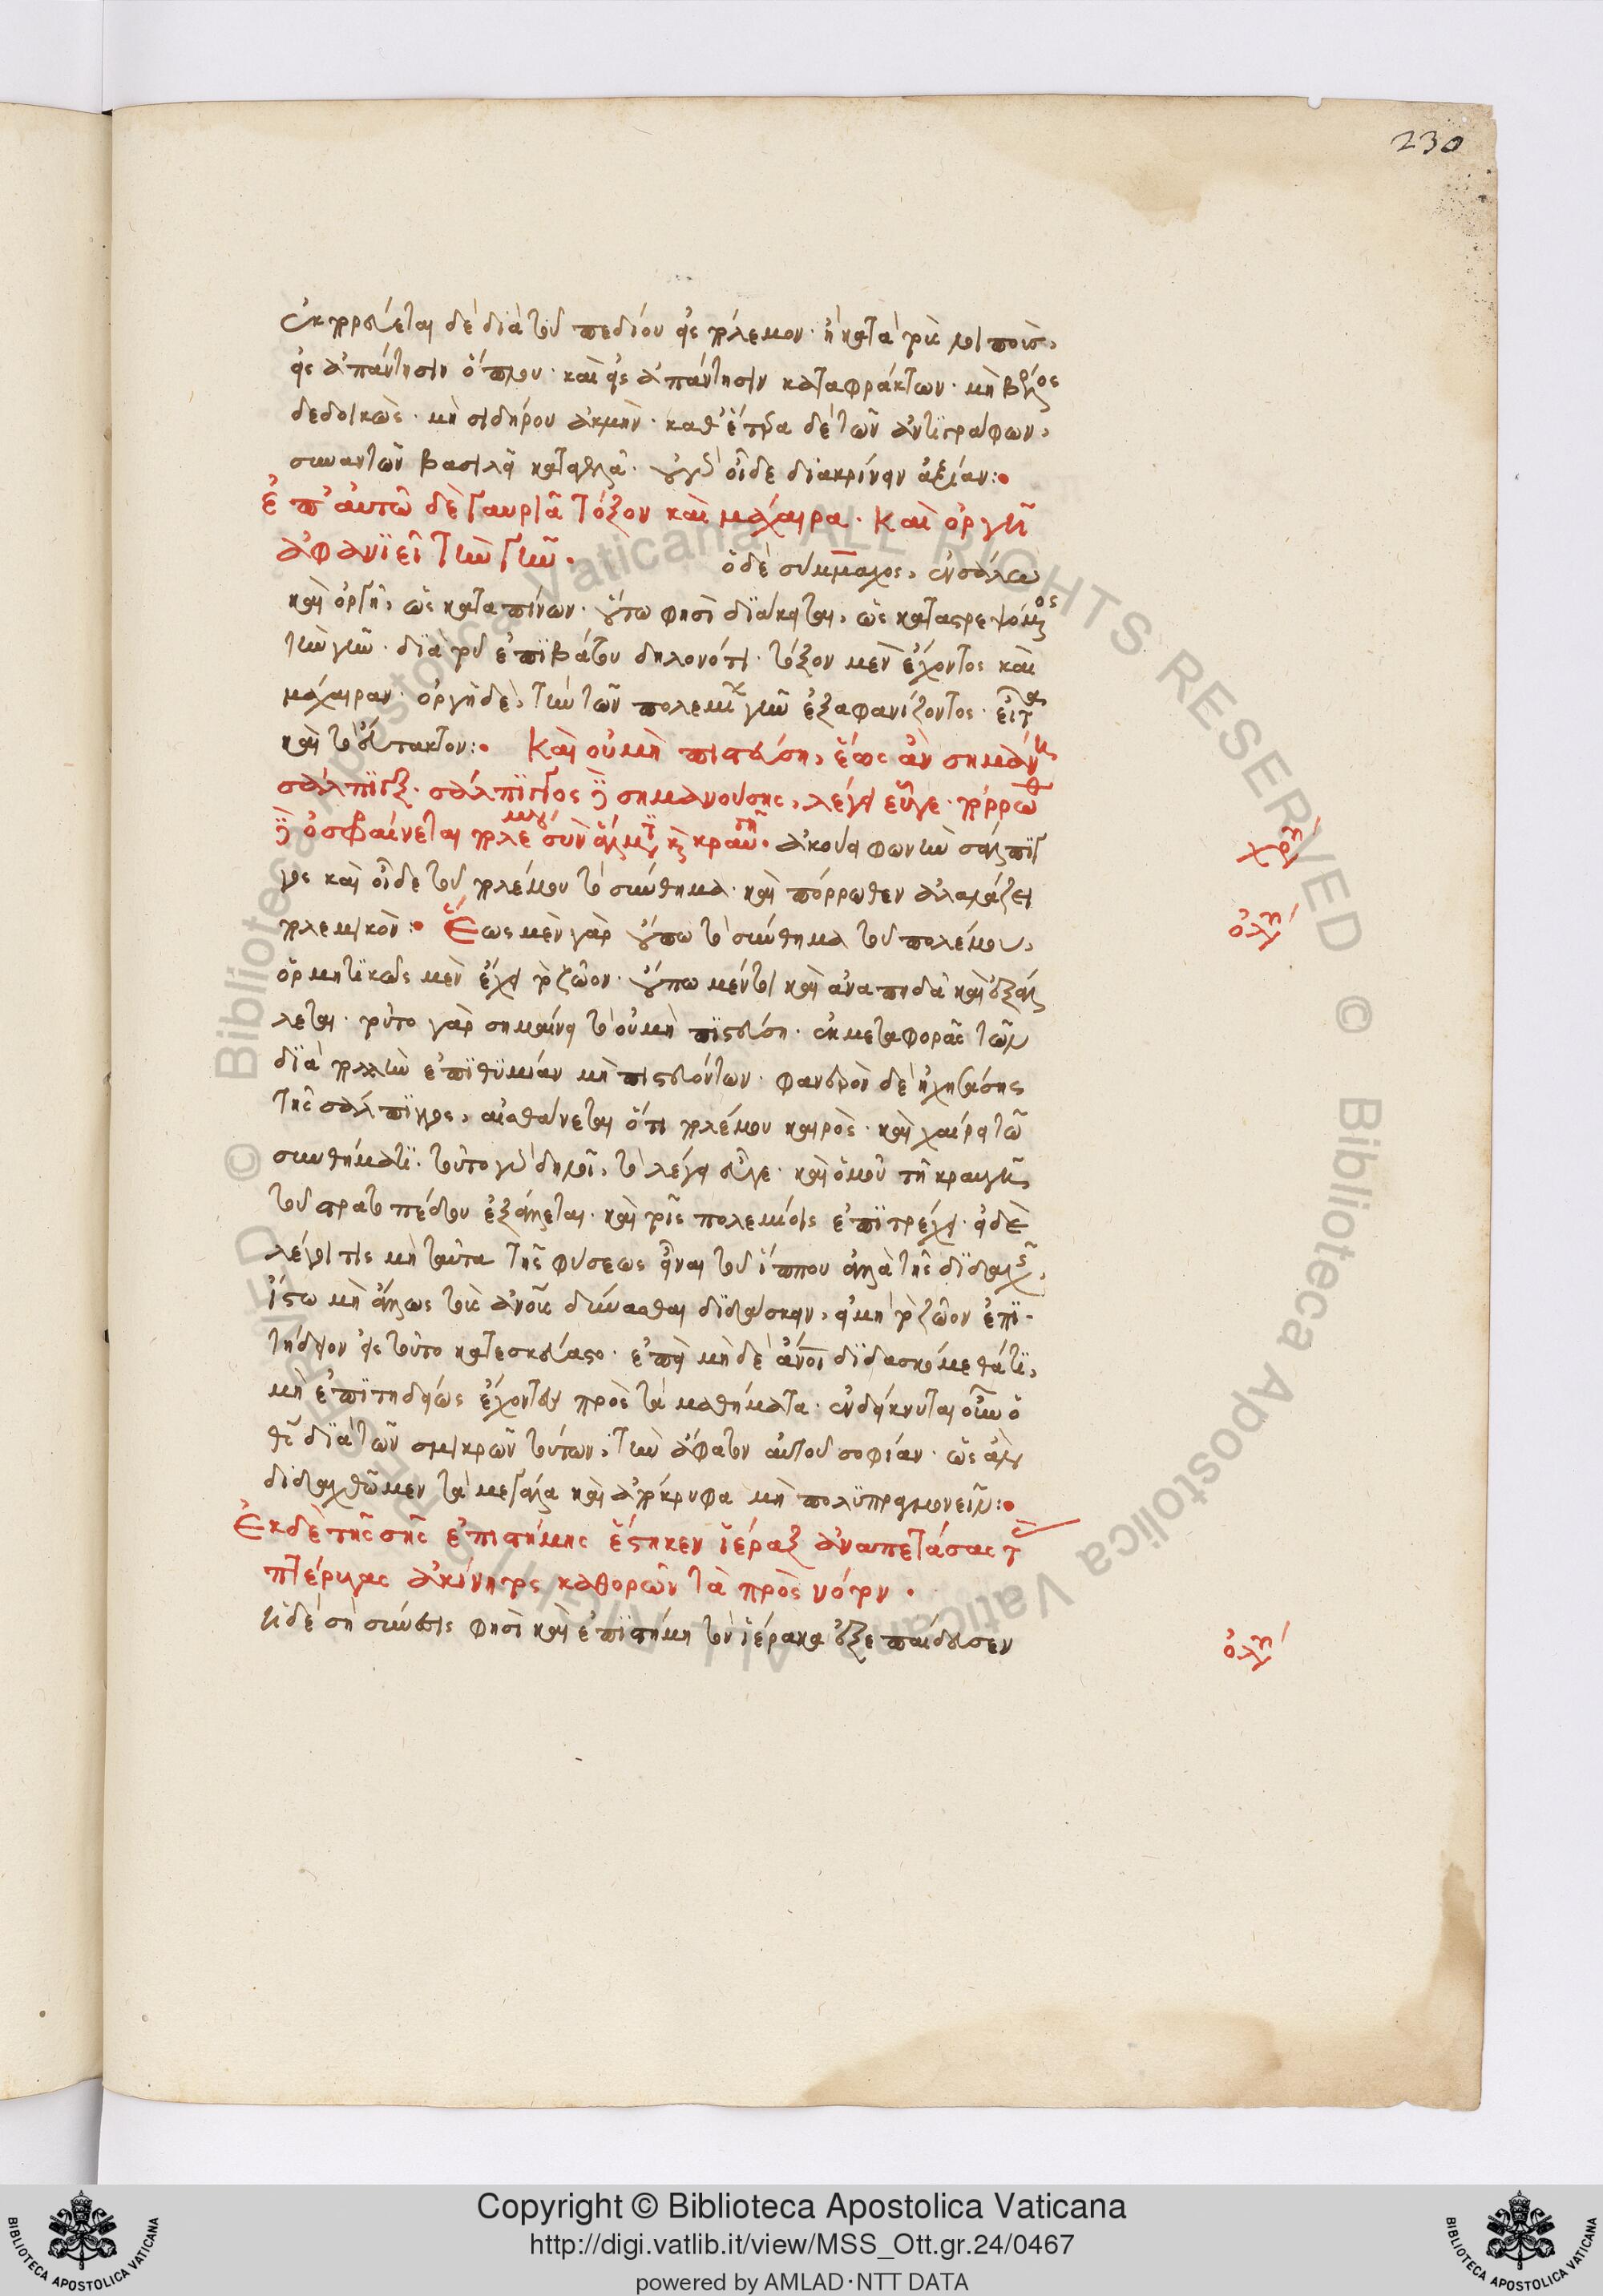 230
ἐκπορεύεται δὲ διὰ τοῦ πεδίου εἰς πόλεμον· ἢ κατὰ τοὺς λοιποὺς,
εἰς ἀπάντησιν ὅπλου· καὶ εἰς ἀπάντησιν καταφράκτων· μὴ βέλος
δεδοικὼς· μὴ σιδήρου ἀκμὴν· καθ' ἕτερα δὲ τῶν ἀντιγράφων,
συναντῶν βασιλεῖ καταγελᾷ· οὐ γὰρ οἶδε διακρίνειν ἀξίαν:
ἐπ' αὐτῷ δὲ γαυριᾷ τόξον καὶ μάχαιρα· καὶ ὀργῇ
ἀφανιεῖ τὴν γῆν.
ὁ δὲ σύμμαχος, ἐν σάλῳ
καὶ ὀργῇ, ὡς καταπίνων· οὕτω φησὶ διάκειται, ὡς καταστρεψόμενος
τὴν γῆν· διὰ τοῦ ἐπιβάτου δηλονότι· τόξον μὲν ἔχοντος καὶ
μάχαιραν· ὀργῇ δὲ, τὴν τῶν πολεμίων γῆν ἐξαφανίζοντος· εἶτα
καὶ τὸ εὔτακτον: Καὶ οὐ μὴ πιστεύσῃ, ἕως ἂν σημάνῃ
σάλπιγξ· σάλπιγγος δὲ σημανούσης, λέγει εὖγε· πόρρωθεν
δὲ ὀσφραίνεται πολέμου σὺν ἅλματι καὶ κραυγῇ· ἀκούει φωνὴν σάλπιγ
γος καὶ οἶδε τοῦ πολέμου τὸ σύνθημα· καὶ πόρρωθεν ἀλαλάζει
χρυ
πολεμικὸν: Ἕως μὲν γὰρ οὔπω τὸ σύνθημα τοῦ πολέμου,
ὀλυ
ὁρμητικῶς μὲν ἔχει τὸ ζῶον· οὔπω μέντοι καὶ ἀναπηδᾷ καὶ ἐξάλ
λεται· τοῦτο γὰρ σημαίνει τὸ οὐ μὴ πιστεύσῃ· ἐκ μεταφορᾶς τῶν
διὰ πολλὴν ἐπιθυμίαν μὴ πιστευόντων· φανερὸν δὲ ἠχησάσης
τῆς σάλπιγγος, αἰσθάνεται ὅτι πολέμου καιρὸς· καὶ χαίρει τῷ
συνθήματι· τοῦτο γὰρ δηλοῖ, τὸ λέγει εὖγε· καὶ ὁμοῦ τῇ κραυγῇ
τοῦ στρατοπέδου ἐξάλλεται· καὶ τοῖς πολεμίοις ἐπιτρέχει· εἰ δὲ
λέγοι τις μὴ ταῦτα τῆς φύσεως εἶναι τοῦ ἵππου ἀλλὰ τῆς διδαχῆς,
ἴστω μὴ ἄλλως τοὺς ἀνους δύνασθαι διδάσκειν, εἰ μὴ τὸ ζῶον ἐπι-
τήδειον εἰς τοῦτο κατεσκεύαστο· ἐπεὶ μὴ δὲ ἄνοι διδασκόμεθά τι,
μὴ ἐπιτηδείως ἔχοντες πρὸς τὰ μαθήματα· ἐνδείκνυται οὖν ὁ
θς διὰ τῶν σμικρῶν τούτων, τὴν ἄφατον αὐτοῦ σοφίαν· ὡς ἂν
διδαχθῶμεν τὰ μεγάλα καὶ ἀπόκρυφα μὴ πολυπραγμονεῖν:
Ἐκ δὲ τῆς σῆς ἐπιστήμης ἕστηκεν ἱέραξ ἀναπετάσας τὰς
πτέρυγας ἀκίνητος καθορῶν τὰ πρὸς νότον.
ἢ δὲ σὴ σύνεσις φησὶ καὶ ἐπιστήμη τὸν ἱέρακα ἐξεπαίδευσεν
ὀλυ
Copyright © Biblioteca Apostolica Vaticana
http://digi.vatlib.it/view/MSS_Ott.gr.24/0467
powered by AMLAD·NTT DATA
BIBLIOTECA APOSTOLICA VATICANA
BIBLIOTECA APOSTOLICA VATICANA
© Biblioteca Apostolica Vaticana ALL RIGHTS RESERVED © Biblioteca Apostolica Vaticana ALL RIGHTS RESERVED